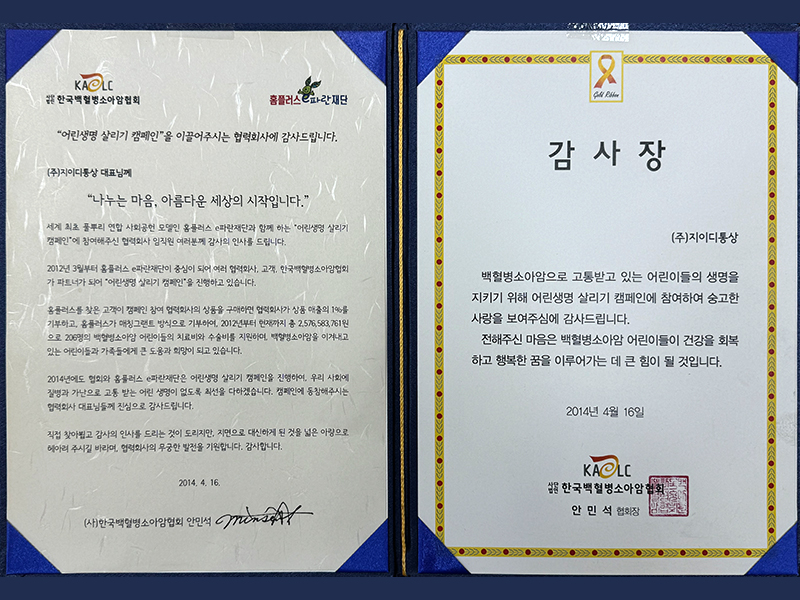 KACLC
사단법인 한국백혈병소아암협회
홈플러스 e파란재단
“어린생명 살리기 캠페인”을 이끌어주시는 협력회사에 감사드립니다.
(주)지이디통상 대표님께
“나누는 마음, 아름다운 세상의 시작입니다.”
세계 최초 풀뿌리 연합 사회공헌 모델인 홈플러스 e파란재단과 함께 하는 “어린생명 살리기
캠페인”에 참여해주신 협력회사 임직원 여러분께 감사의 인사를 드립니다.
2012년 3월부터 홈플러스 e파란재단이 중심이 되어 여러 협력회사, 고객, 한국백혈병소아암협회
가 파트너가 되어 “어린생명 살리기 캠페인”을 진행하고 있습니다.
홈플러스를 찾은 고객이 캠페인 참여 협력회사의 상품을 구매하면 협력회사가 상품 매출의 1%를
기부하고, 홈플러스가 매칭그랜트 방식으로 기부하여, 2012년부터 현재까지 총 2,576,583,761원
으로 206명의 백혈병소아암 어린이들의 치료비와 수술비를 지원하며, 백혈병소아암을 이겨내고
있는 어린이들과 가족들에게 큰 도움과 희망이 되고 있습니다.
2014년에도 협회와 홈플러스 e파란재단은 어린생명 살리기 캠페인을 진행하여, 우리 사회에
질병과 가난으로 고통 받는 어린 생명이 없도록 최선을 다하겠습니다. 캠페인에 동참해주시는
협력회사 대표님들께 진심으로 감사드립니다.
직접 찾아뵙고 감사의 인사를 드리는 것이 도리지만, 지면으로 대신하게 된 것을 넓은 아량으로
헤아려 주시길 바라며, 협력회사의 무궁한 발전을 기원합니다. 감사합니다.
2014. 4. 16.
(사)한국백혈병소아암협회 안민석
Gold Ribbon
감사장
(주)지이디통상
백혈병소아암으로 고통받고 있는 어린이들의 생명을
지키기 위해 어린생명 살리기 캠페인에 참여하여 숭고한
사랑을 보여주심에 감사드립니다.
전해주신 마음은 백혈병소아암 어린이들이 건강을 회복
하고 행복한 꿈을 이루어가는 데 큰 힘이 될 것입니다.
2014년 4월 16일
KACLC
사단법인 한국백혈병소아암협회
안민석 협회장